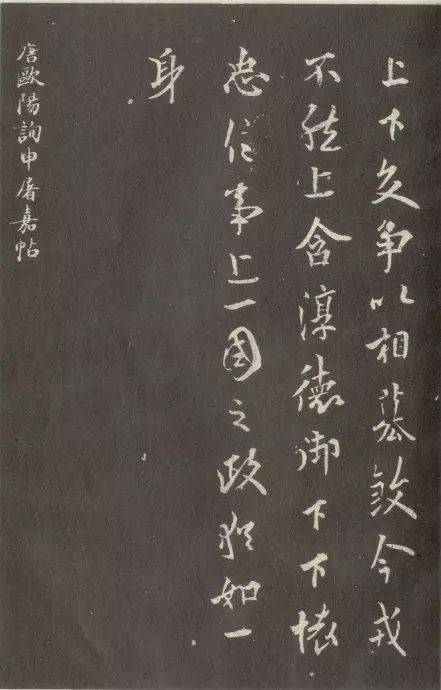 上下交争以相篡殺今戎
不然上含淳德御下下懷
忠信事上一國之政猶如一
身
唐歐陽詢申屠嘉帖